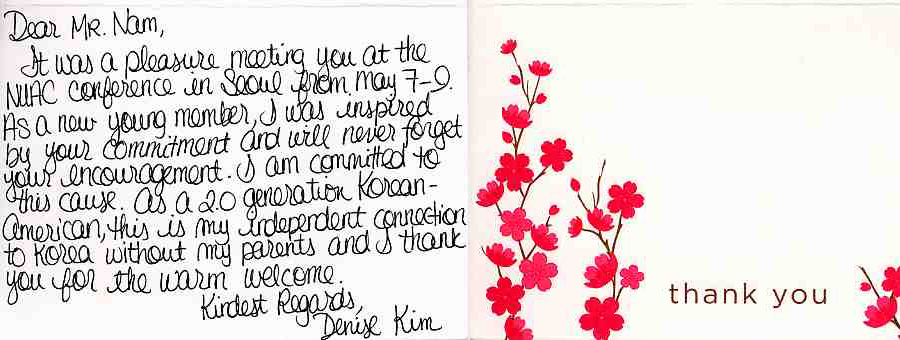 Dear Mr. Nam,
It was a pleasure meeting you at the
NUAC conference in Seoul from May 7-9.
As a new young member, I was inspired
by your commitment and will never forget
your encouragement. I am committed to
this cause. As a 2.0 generation Korean-
American, this is my independent connection
to Korea without my parents and I thank
you for the warm welcome.
Kindest Regards,
Denise Kim
thank you